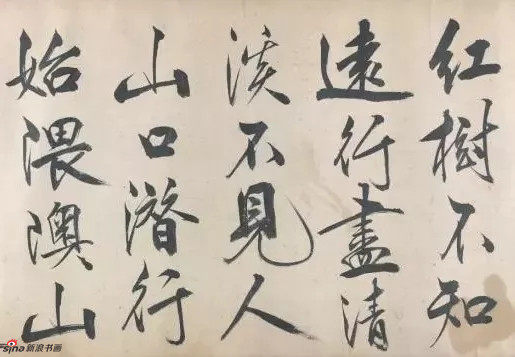 紅樹不知
遠行盡清
溪不見人
山口潛行
始隈隩山
sina 新浪书画